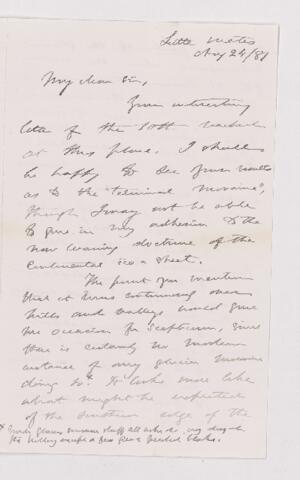 Little Metis
Aug 24/81
My dear Sir,
Your interesting
letter of the 10th reached
at this place. I shall
be happy to see your results
as to the "terminal moraine",
though I may not be able
to give in my adhesion to the
now leaning doctrine of the
Continental ice a sheet.
The point you mention
that it runs continuing over
hills and valleys would give
me occasion for scepticism, since
there is certainly no modern
instance of any glacier moraine
doing so.* It looks more like
what might be expected
of the Southern edge of the